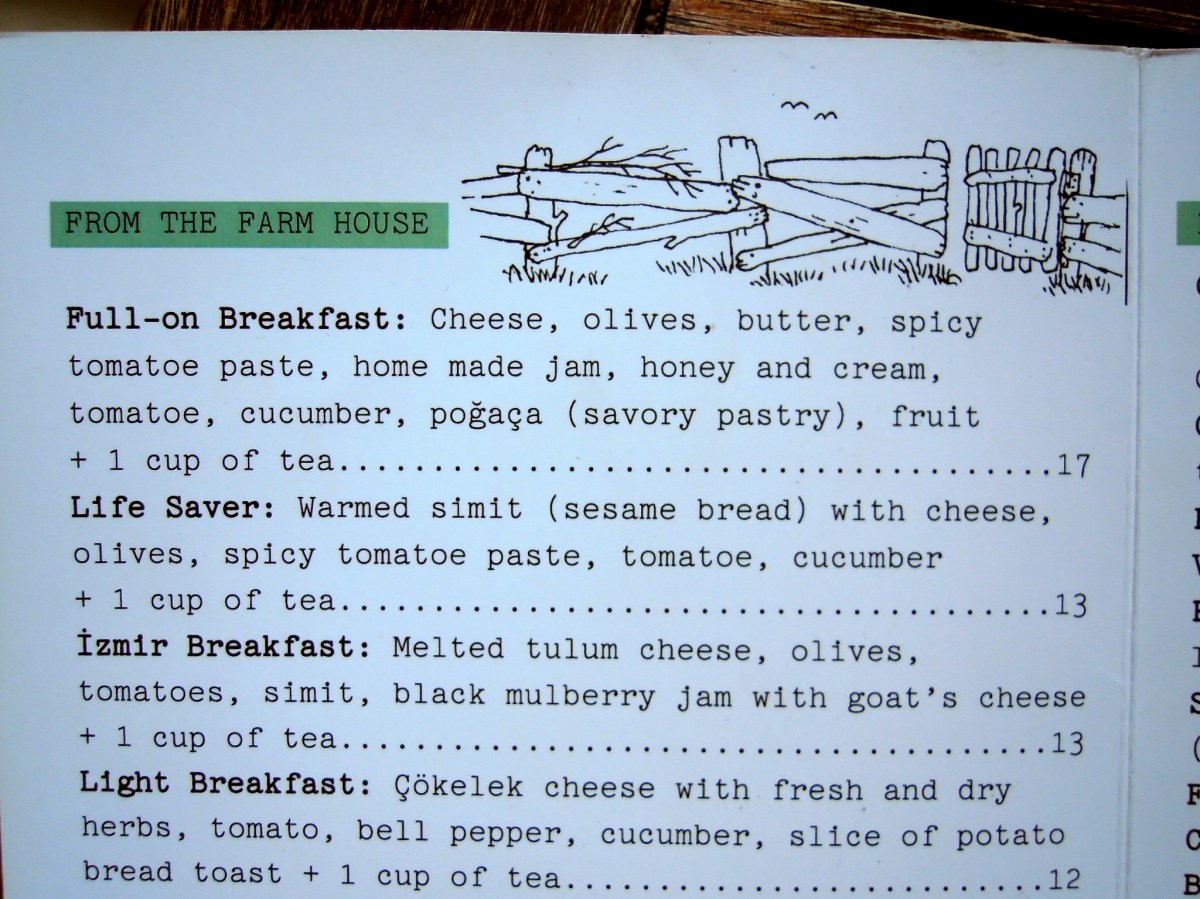 FROM THE FARM HOUSE
Full-on Breakfast: Cheese, olives, butter, spicy
tomatoe paste, home made jam, honey and cream,
tomatoe, cucumber, poğaça (savory pastry), fruit
+ 1 cup of tea.......................................17
Life Saver: Warmed simit (sesame bread) with cheese,
olives, spicy tomatoe paste, tomatoe, cucumber
+ 1 cup of tea.......................................13
İzmir Breakfast: Melted tulum cheese, olives,
tomatoes, simit, black mulberry jam with goat's cheese
+ 1 cup of tea.......................................13
Light Breakfast: Çökelek cheese with fresh and dry
herbs, tomato, bell pepper, cucumber, slice of potato
bread toast + 1 cup of tea...........................12